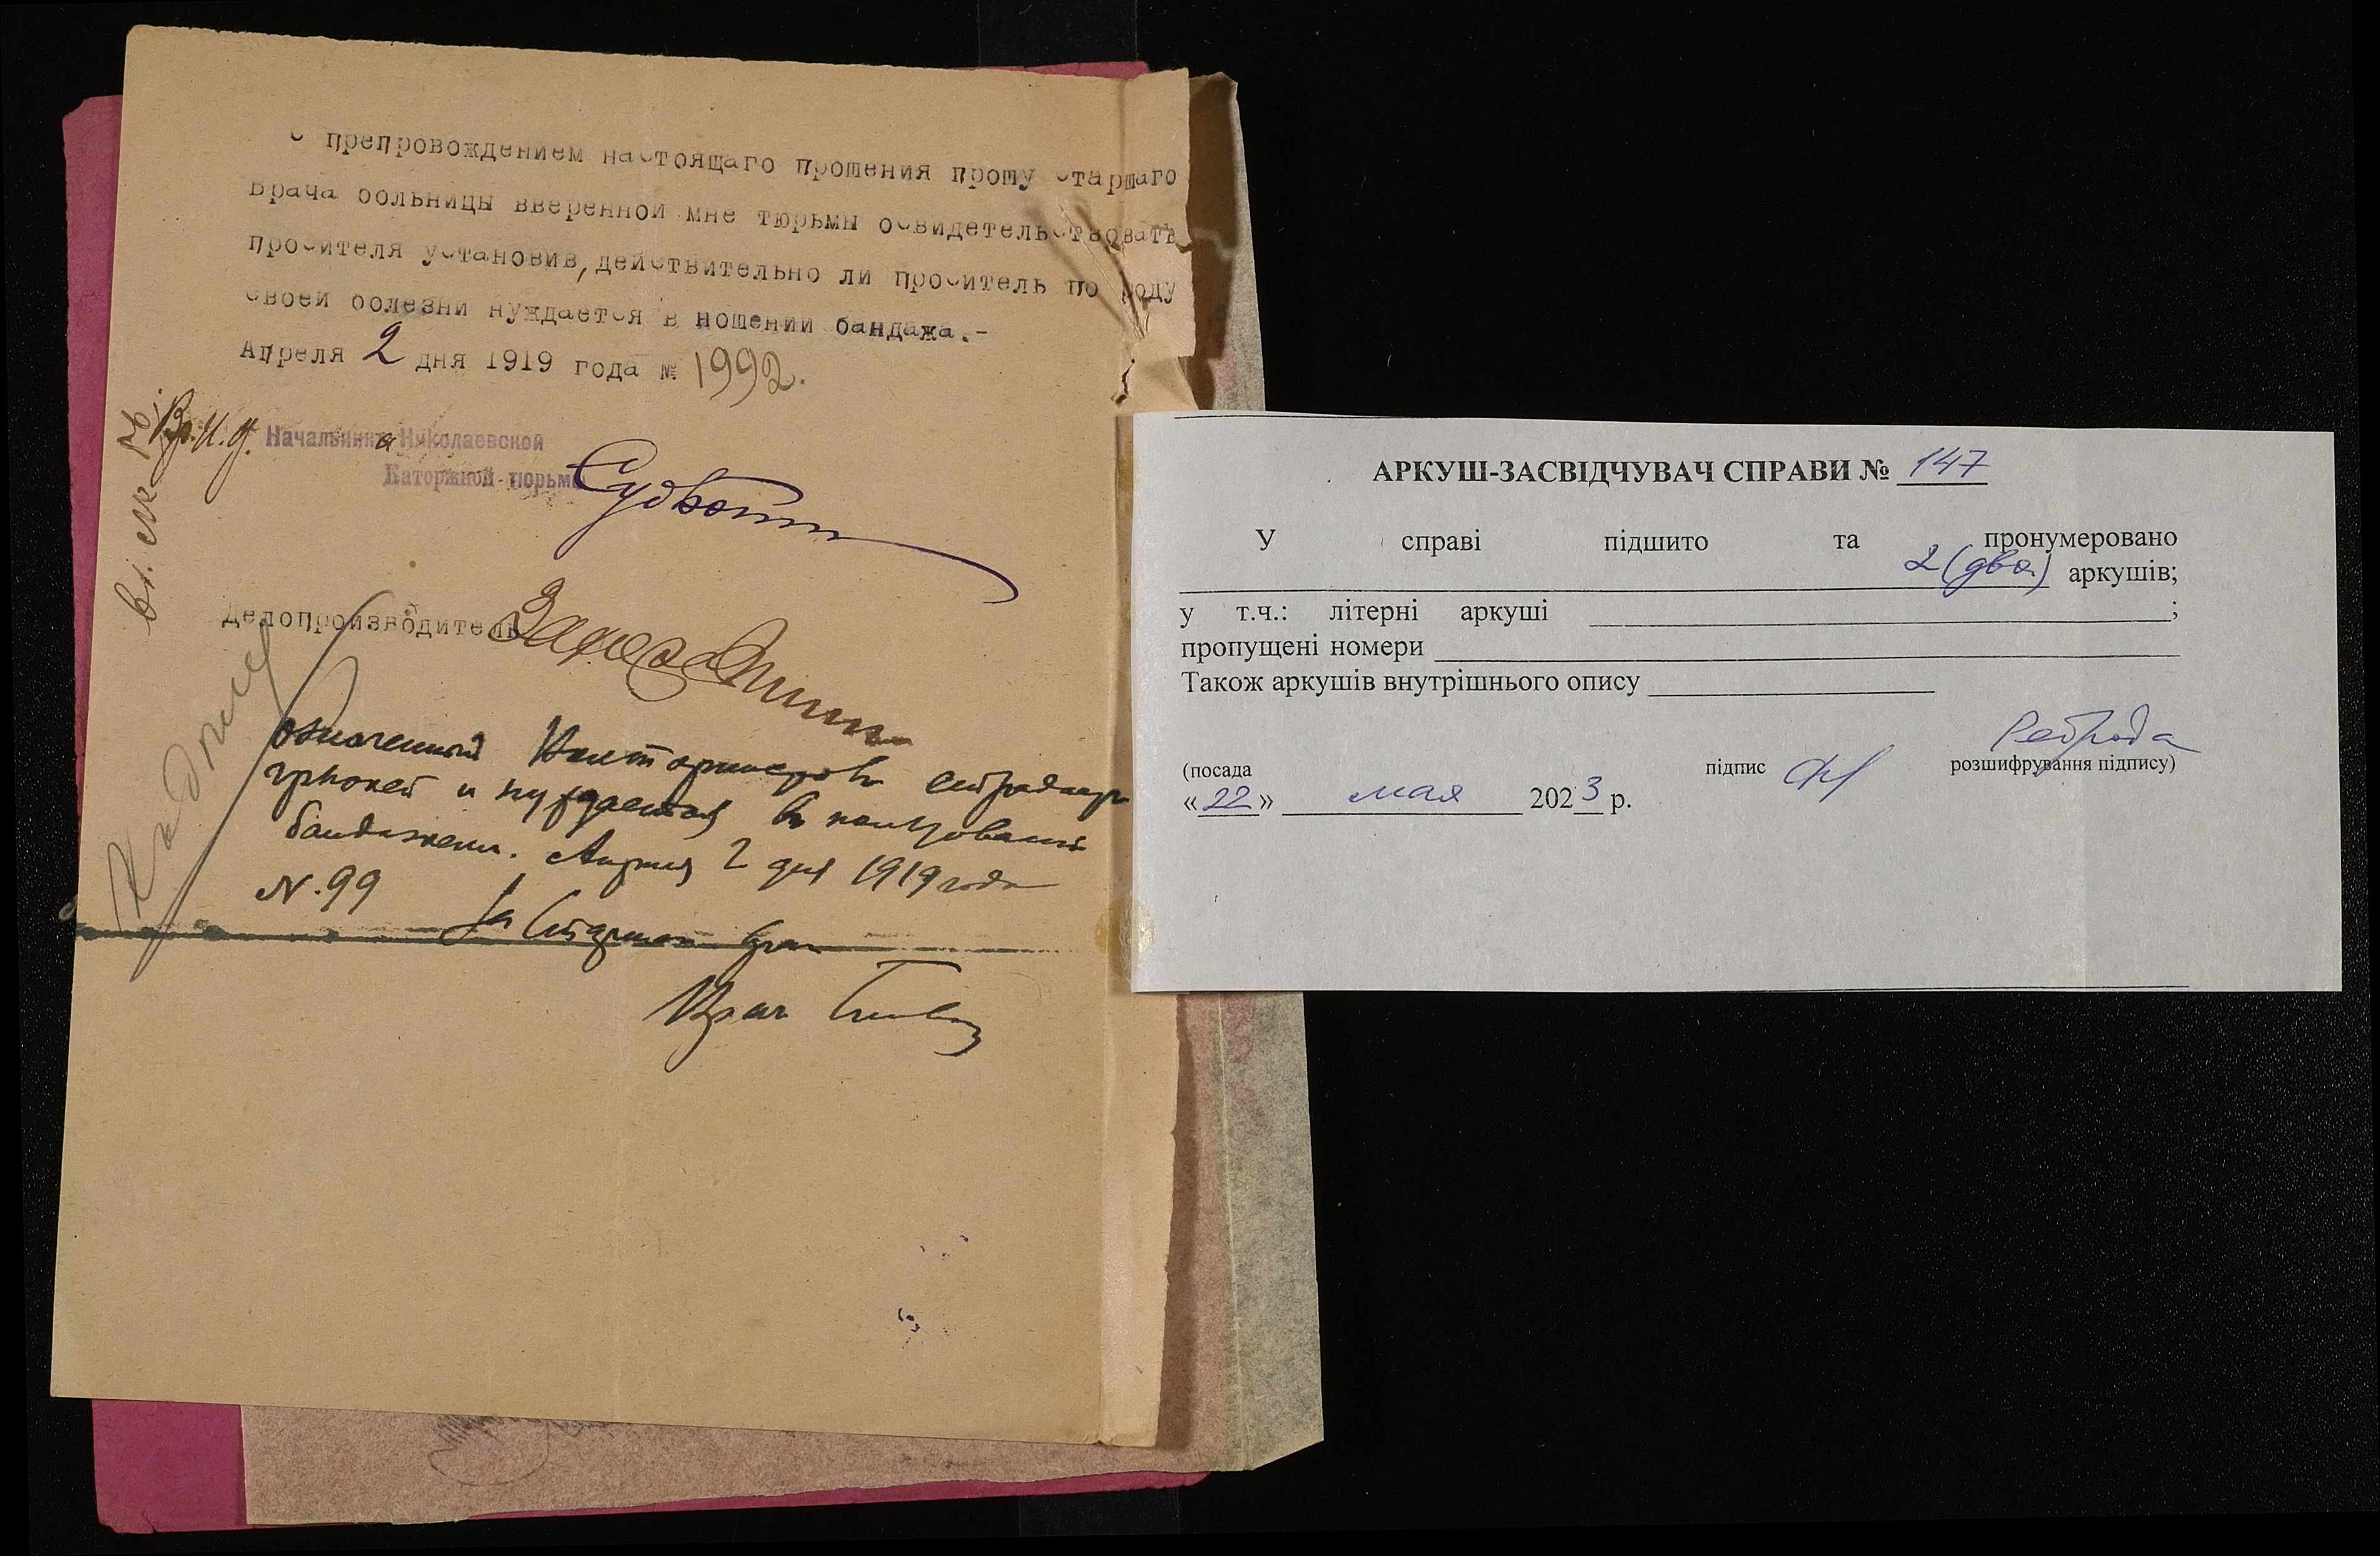 С препровождением настоящаго прошения прошу Старшаго
Врача больницы вверенной мне тюрьмы освидетельствовать
просителя установив, действительно ли проситель по роду
своей болезни нуждается в ношении бандажа.-
Апреля 2 дня 1919 года № 1992.
Вр. И. д. Начальника Николаевской
Каторжной тюрьмы
Делопроизводитель
означенный страдает
грыжей и нуждается в пользовании
бандажем. Апреля 2 дня 1919 года
N. 99
За Старшаго врача
Врач
АРКУШ-ЗАСВІДЧУВАЧ СПРАВИ № 147
У справі підшито та пронумеровано
2 (два) аркушів;
у т.ч.: літерні аркуші ;
пропущені номери
Також аркушів внутрішнього опису
(посада підпис розшифрування підпису)
«22» мая 2023 р.